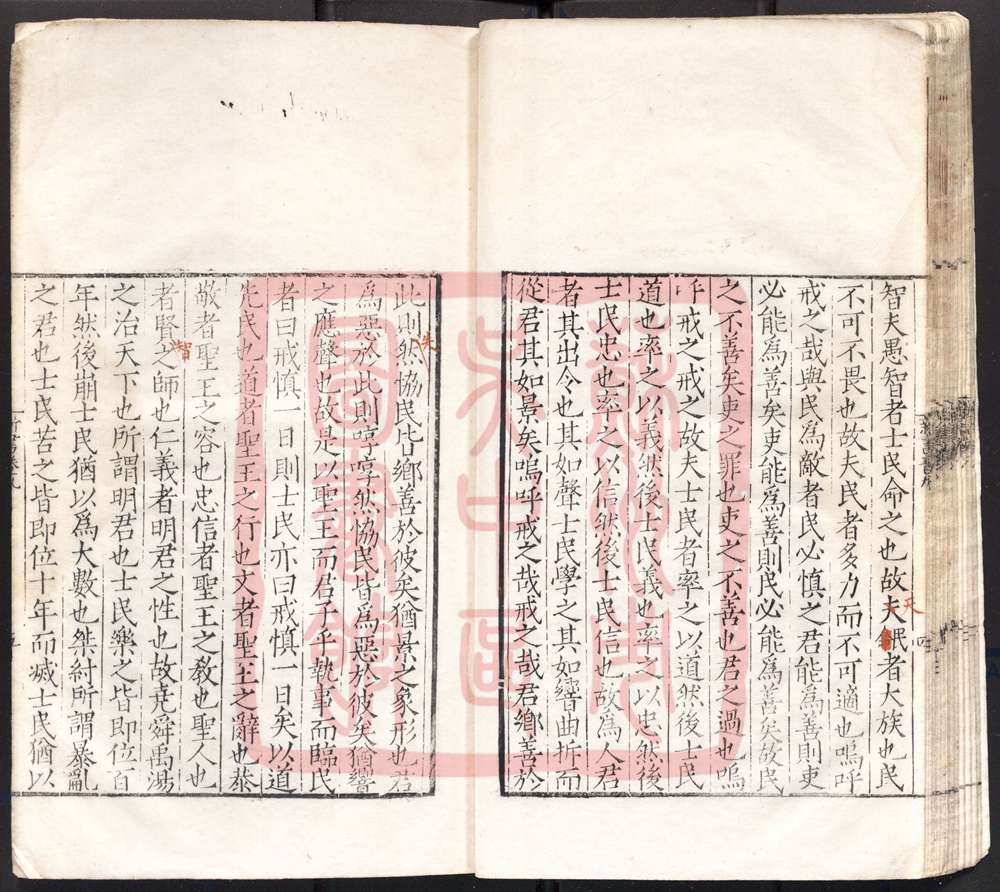 智夫愚智者士民命之也故夫眠者大族也民
天
不可不畏也故夫民者多力而不可適也嗚呼
戒之哉與民爲敵者民必慎之君能爲善則吏
必能爲善矣吏能爲善則民必能爲善矣故民
之不善矣吏之罪也吏之不善也君之過也嗚
呼戒之戒之故夫士民者率之以道然後士民
道也率之以義然後士民義也率之以忠然後
士民忠也率之以信然後士民信也故爲人君
者其出令也其如聲士民學之其如響曲拆而
從君其如景矣嗚呼戒之哉戒之哉君鄉善於
此則然協民皆鄉善於彼矣猶景之象形也君
失
爲惡於此則啍啍然協民皆爲惡於彼矣猶響
之應聲也故是以聖王而君子乎執事而臨民
者曰戒慎一日則士民亦曰戒慎一日矣以道
先民也道者聖王之行也文者聖王之辭也恭
敬者聖王之容也忠信者聖王之敎也聖人也
者賢之師也仁義者明君之性也故堯舜禹湯
智
之治天下也所謂明君也士民樂之皆即位百
年然後崩士民猶以爲大數也桀紂所謂暴亂
之君也士民苦之皆即位十年而滅士民猶以
蘇州市
吳中區
圖書館